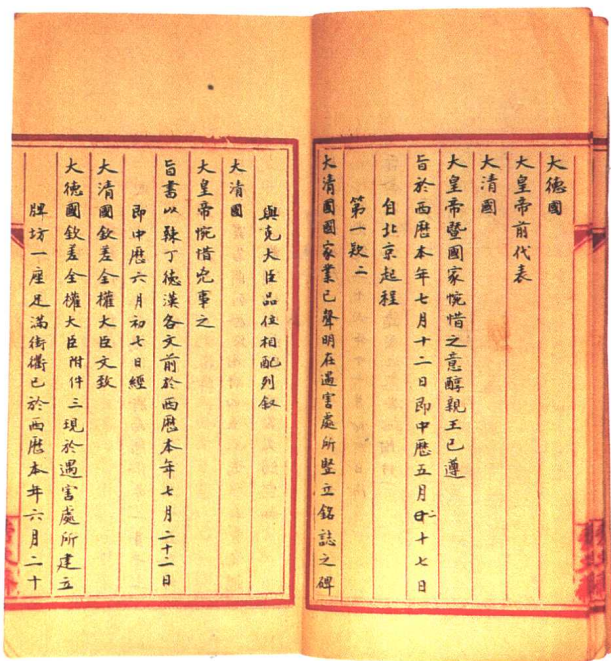 大德國
大皇帝前代表
大清國
大皇帝暨國家惋惜之意醇親王已遵
旨於西歷本年七月十二日即中歷五月二十七日
自北京起程
第一款二
大清國國家業已聲明在遇害處所豎立銘誌之碑
與克大臣品位相配列叙
大清國
大皇帝惋惜兇事之
旨書以辣丁德漢各文前於西歷本年七月二十二日
即中歷六月初七日經
大清國欽差全權大臣文致
大德國欽差全權大臣附件三現於遇害處所建立
牌坊一座足滿街衢已於西歷本年六月二十